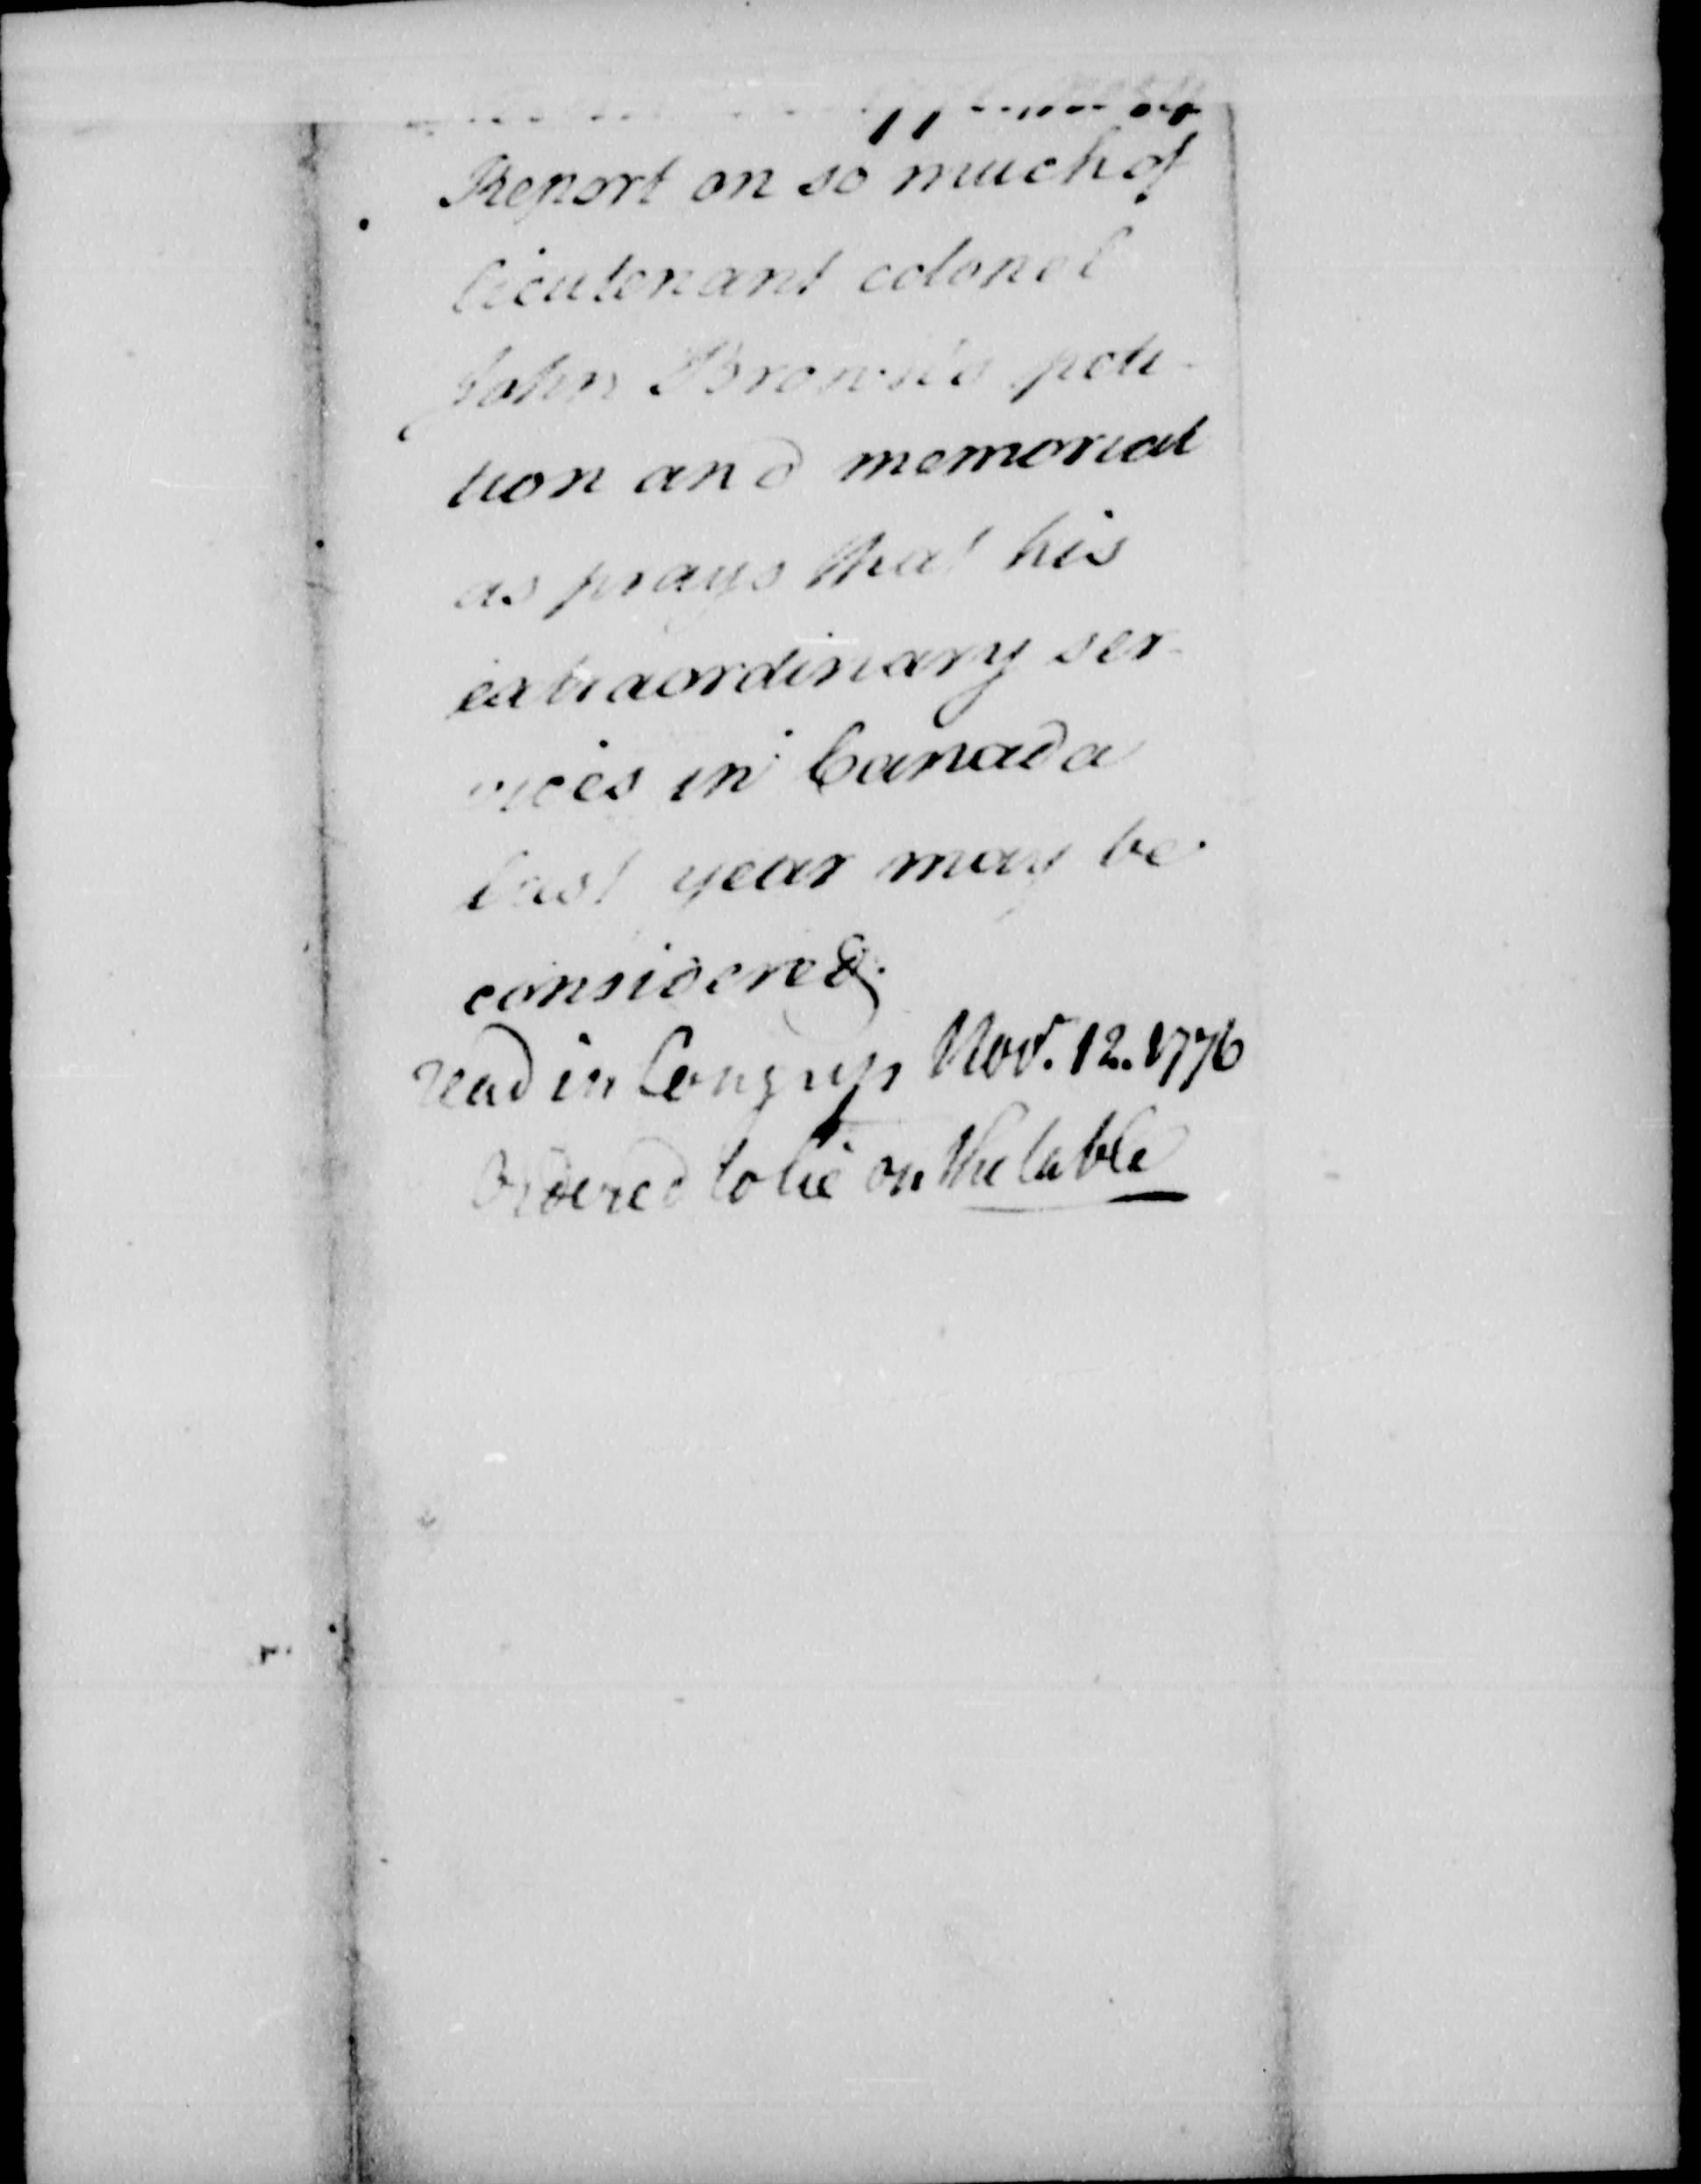 Report on so much of
lieutenant colonel
John Brown's peti-
tion and memorial
as prays that his
extraordinary ser-
vices in Canada
last year may be
considered.
read in Congress Nov.r 12. 1776
Ordered to lie on the table